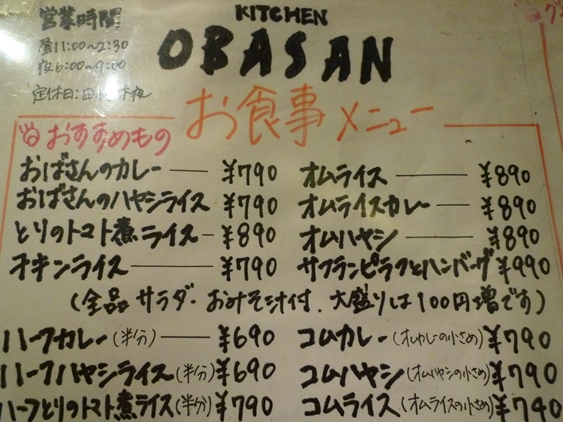 営業時間
昼11:00~2:30
夜6:00~9:00
定休日:日
KITCHEN
OBASAN
お食事メニュー
おすすめもの
おばさんのカレー ¥790
おばさんのハヤシライス ¥790
とりのトマト煮ライス ¥890
チキンライス ¥790
オムライス ¥890
オムライスカレー ¥890
オムハヤシ ¥890
サフランピラフとハンバーグ ¥990
(全品サラダ・おみそ汁付.大盛りは100円増です)
ハーフカレー(半分) ¥690
ハーフハヤシライス(半分) ¥690
ハーフとりのトマト煮ライス(半分) ¥790
コムカレー(オムカレーの小さめ) ¥790
コムハヤシ(オムハヤシの小さめ) ¥790
コムライス(オムライスの小さめ) ¥740